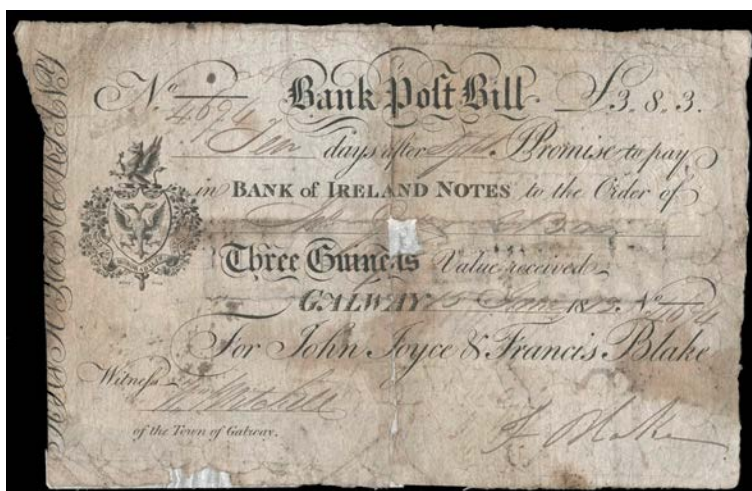 No. 4694 Bank Poſt Bill £3.8.3.
Ten days after Sight Promise to pay
in BANK of IRELAND NOTES to the Order of
Three Guineas Value received
GALWAY 15 1812 No 4694
For John Joyce & Francis Blake
Witness Mitchell
of the Town of Galway. F Blake